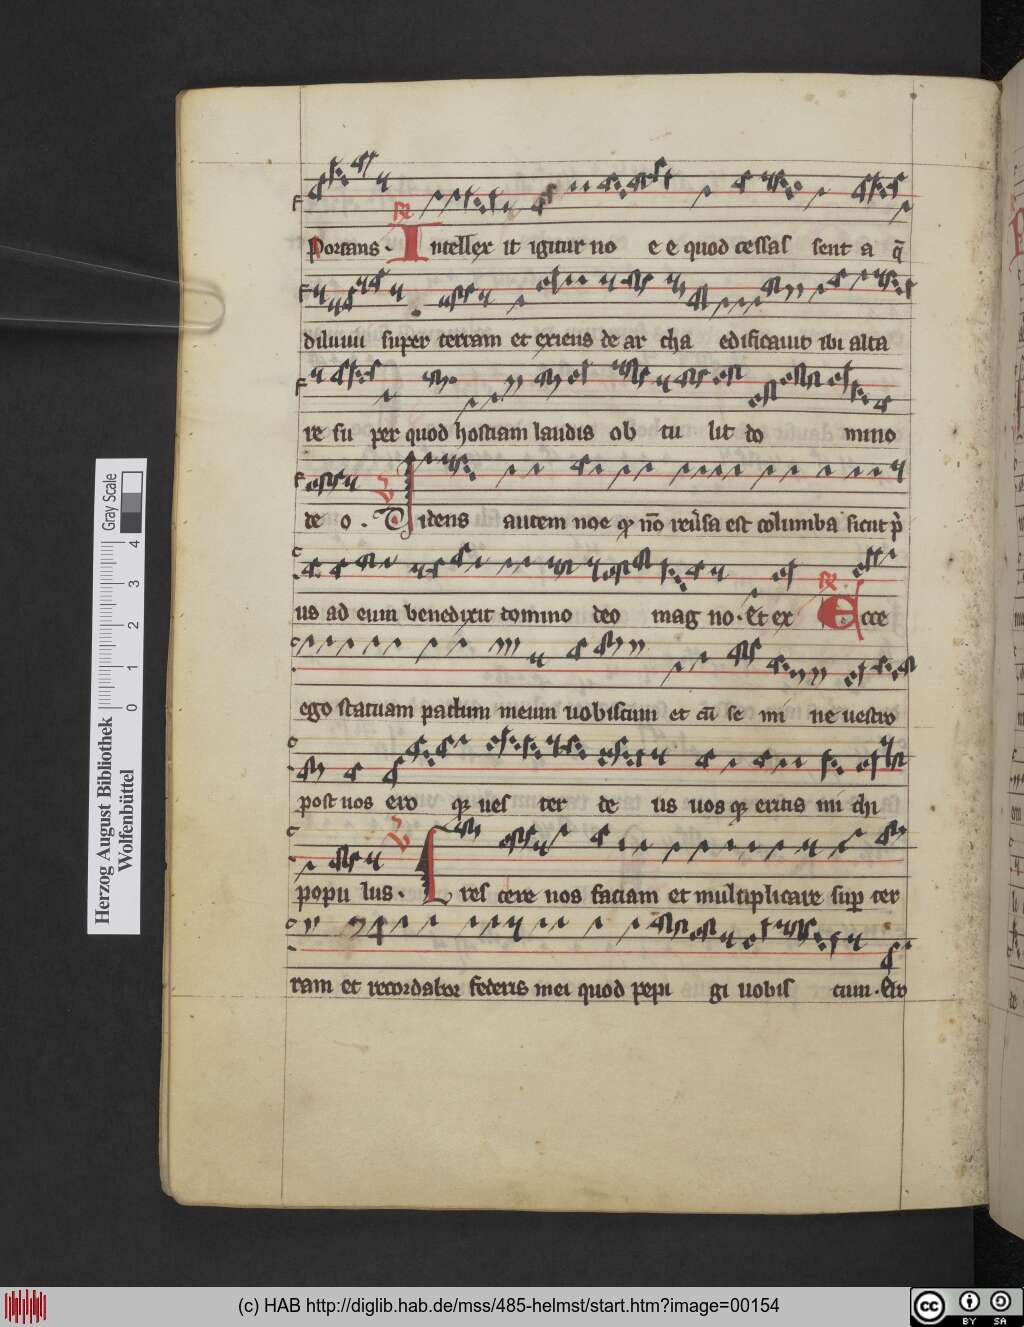 Portans · R̸ Intellex it igitur no e e quod cessas sent a q̄
diluuii super terram et exiens de ar cha edificauit ibi alta
re su per quod hostiam laudis ob tu lit do mino
de o . V̸ Videns autem noe qꝫ nō reu̓sa est columba sicut p̓
us ad eum benedixit domino deo mag no · Et ex R̸ Ecce
ego statuam pactum meum uobiscum et cū se mi ne uestro
post uos ero qꝫ ues ter de us uos qꝫ eritis mi chi
popu lus · V̸ Cres cere uos faciam et multiplicare suꝑ ter
ram et recordabor federis mei quod pepi gi uobis cum · Ero
Herzog August Bibliothek
Wolfenbüttel
0 1 2 3 4
Gray Scale
(c) HAB http://diglib.hab.de/mss/485-helmst/start.htm?image=00154
cc BY SA